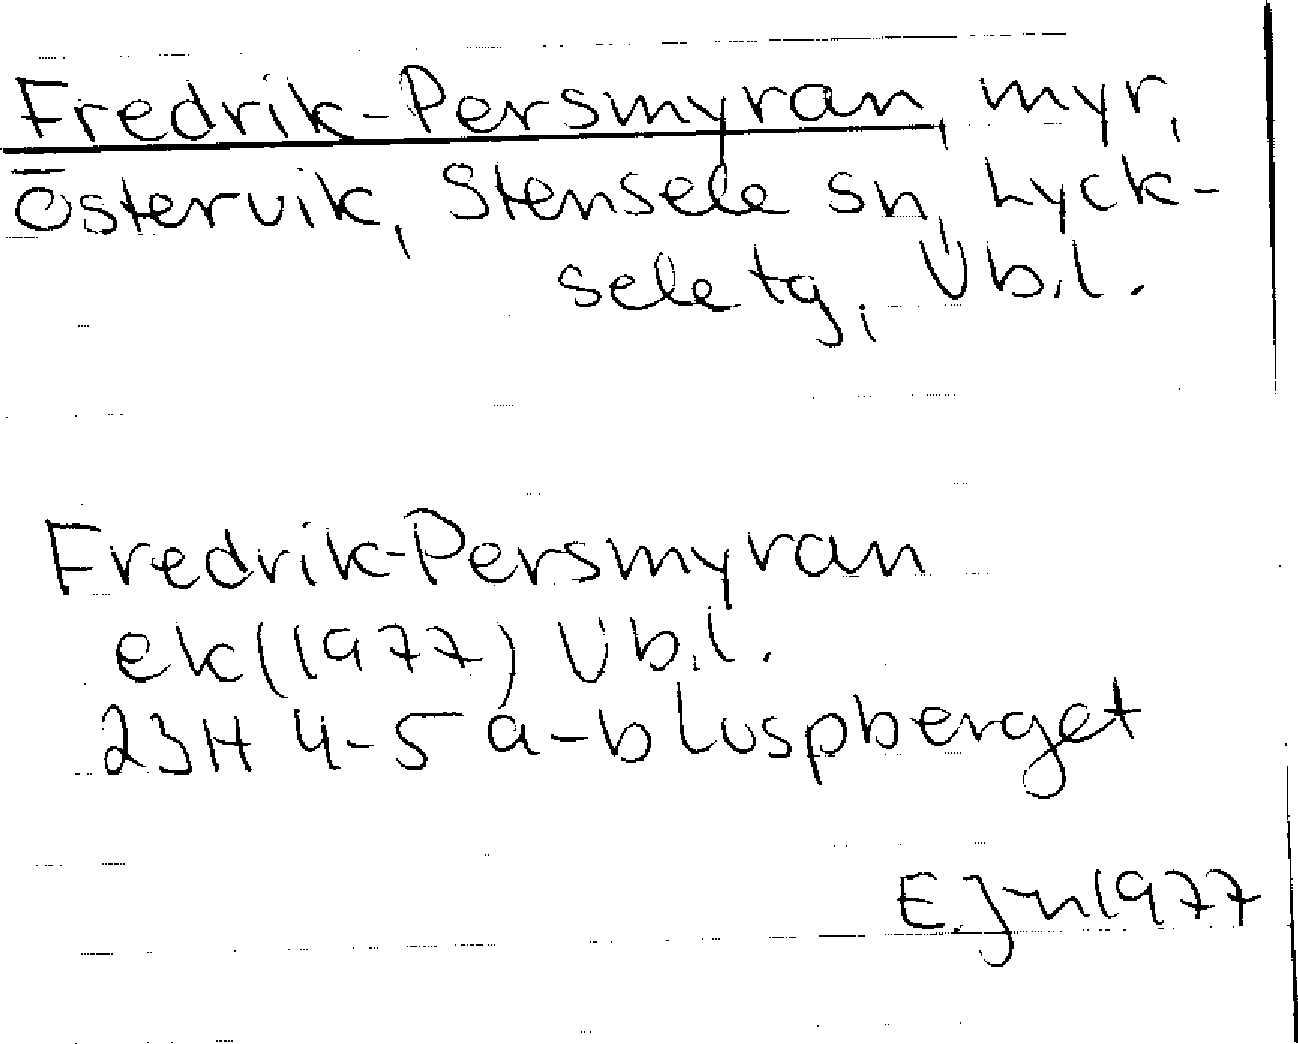 Fredrik-Persmyran, myr,
Östervik, Stensele sn, Lyck-
sele tg, Vb.l.
Fredrik-Persmyran
ek (1977) Vb.l.
23H 4-5 a-b Luspberget
E.Jn 1977